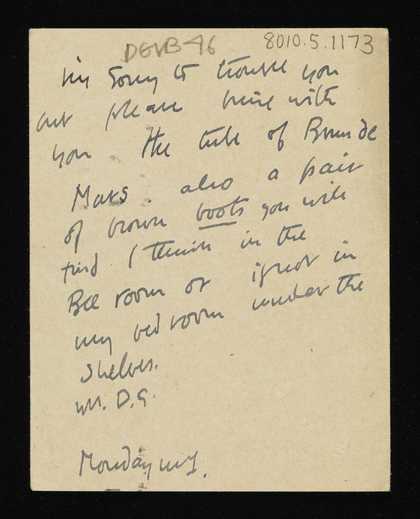 DGVB-46
8010.5.1173
I'm Sorry to trouble you
but please bring with
you the tube of Brun de
Mars. also a pair
of brown boots you will
find I think in the
Bee room or if not in
my bed room under the
shelves.
D.G.
Monday